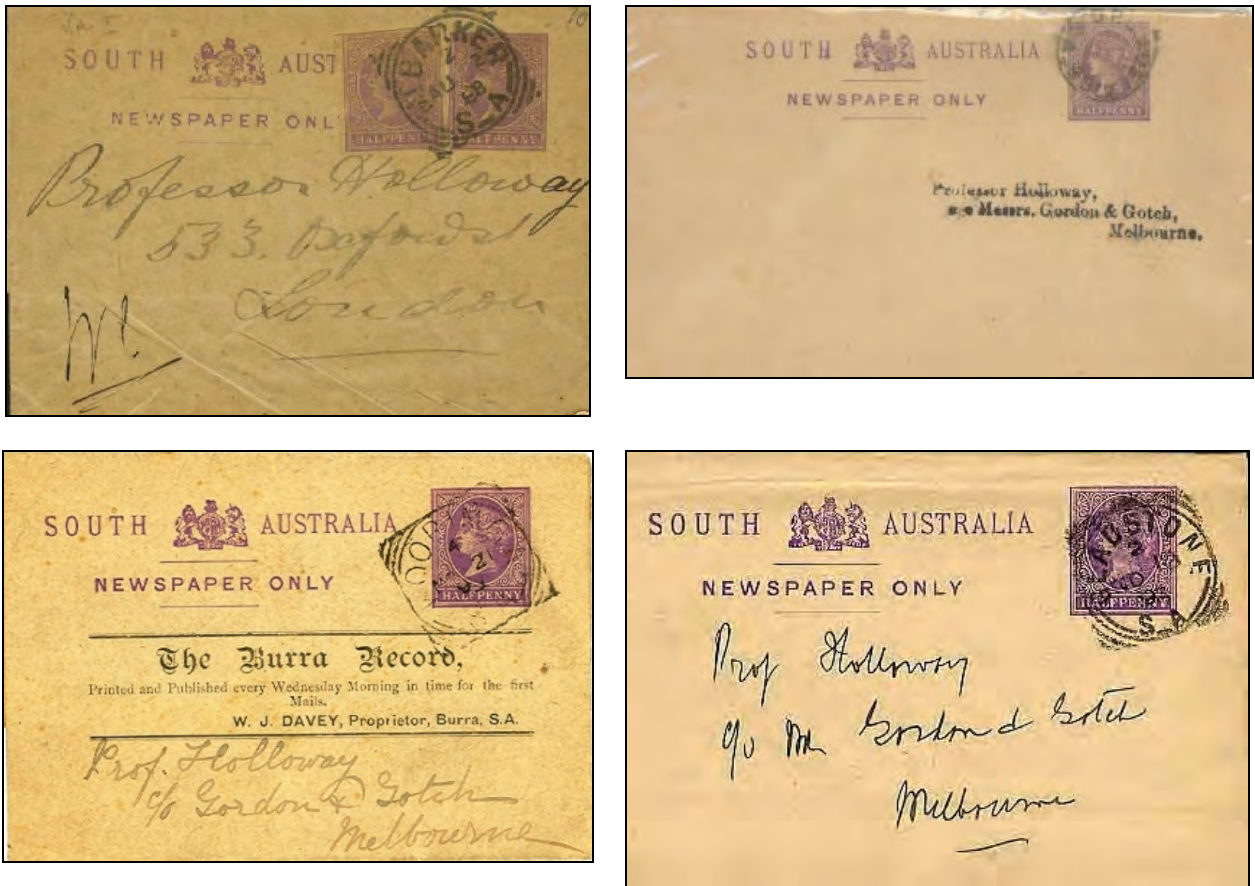 SOUTH AUST
NEWSPAPER ONL
HALFPENNY HALFPENNY
BARKER
S.A
Professor Holloway
533. Oxford St
London
SOUTH AUSTRALIA
NEWSPAPER ONLY
HALFPENNY
Professor Holloway,
c/o Messrs. Gordon & Gotch,
Melbourne.
SOUTH AUSTRALIA
NEWSPAPER ONLY
HALFPENNY
21
The Burra Record,
Printed and Published every Wednesday Morning in time for the first
Mails.
W. J. DAVEY, Proprietor, Burra, S.A.
Prof. Holloway
c/o Gordon & Gotch
Melbourne
SOUTH AUSTRALIA
NEWSPAPER ONLY
HALFPENNY
S.A
Prof Holloway
c/o Gordon & Gotch
Melbourne